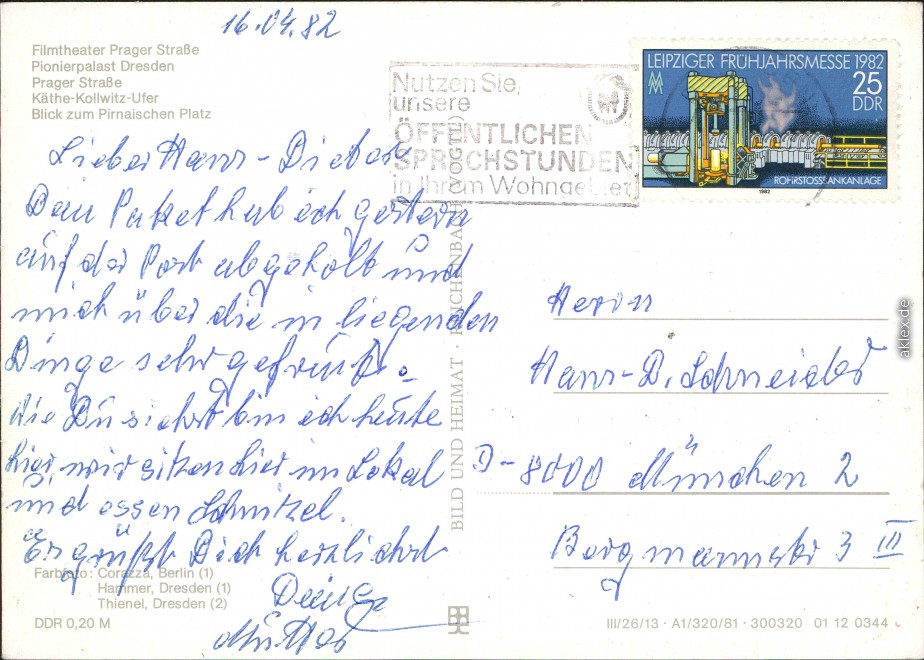 16.04.82
Filmtheater Prager Straße
Pionierpalast Dresden
Prager Straße
Käthe-Kollwitz-Ufer
Blick zum Pirnaischen Platz
Nutzen Sie
unsere
ÖFFENTLICHEN
SPRECHSTUNDEN
in Ihrem Wohngebiet
LEIPZIGER FRÜHJAHRSMESSE 1982
25
DDR
ROHRSTOSSBANKANLAGE
1982
Lieber Hans-Dieter
Dein Paket hab ich gestern
auf der Post abgeholt und
mich über die in liegenden
Dinge sehr gefreut.
Wie Du siehst bin ich heute
hier, wir sitzen hier im Lokal
und essen Schnitzel.
Es grüßt Dich herzlichst
Deine
Mutter
BILD UND HEIMAT · REICHENBACH (VOGTL)
Herrn
Hans-D. Schneider
D-8000 München 2
Bergmannstr 3 III
Farbfoto: Corazza, Berlin (1)
Hammer, Dresden (1)
Thienel, Dresden (2)
DDR 0,20 M
III/26/13 · A1/320/81 · 300320 01 12 0344
aklex.de